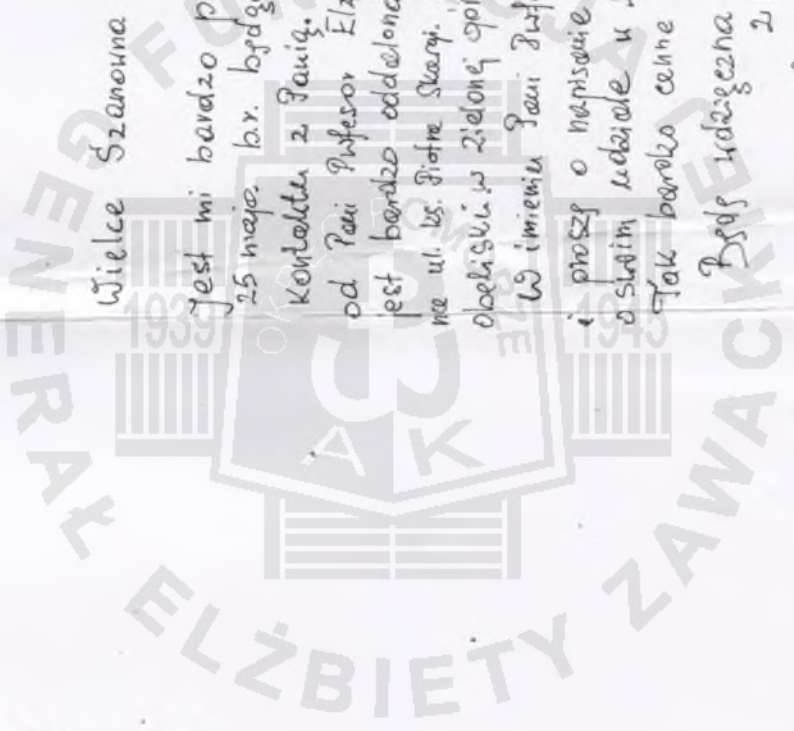 Wielce Szanowna
Jest mi bardzo p
25 maja. b.r. będąc
kontaktu z Panią.
od Pani Profesor Elż
jest bardzo oddalona
na ul. ks. Piotra Skargi.
obeliski w Zielonej Gór
W imieniu Pani Prof
i proszę o napisanie
o swoim udziale w
Tak bardzo cenne
Będę wdzięczna
2
FUNDACJA
GENERAŁ ELŻBIETY ZAWACKIEJ
POMORZE
1939
1945
AK